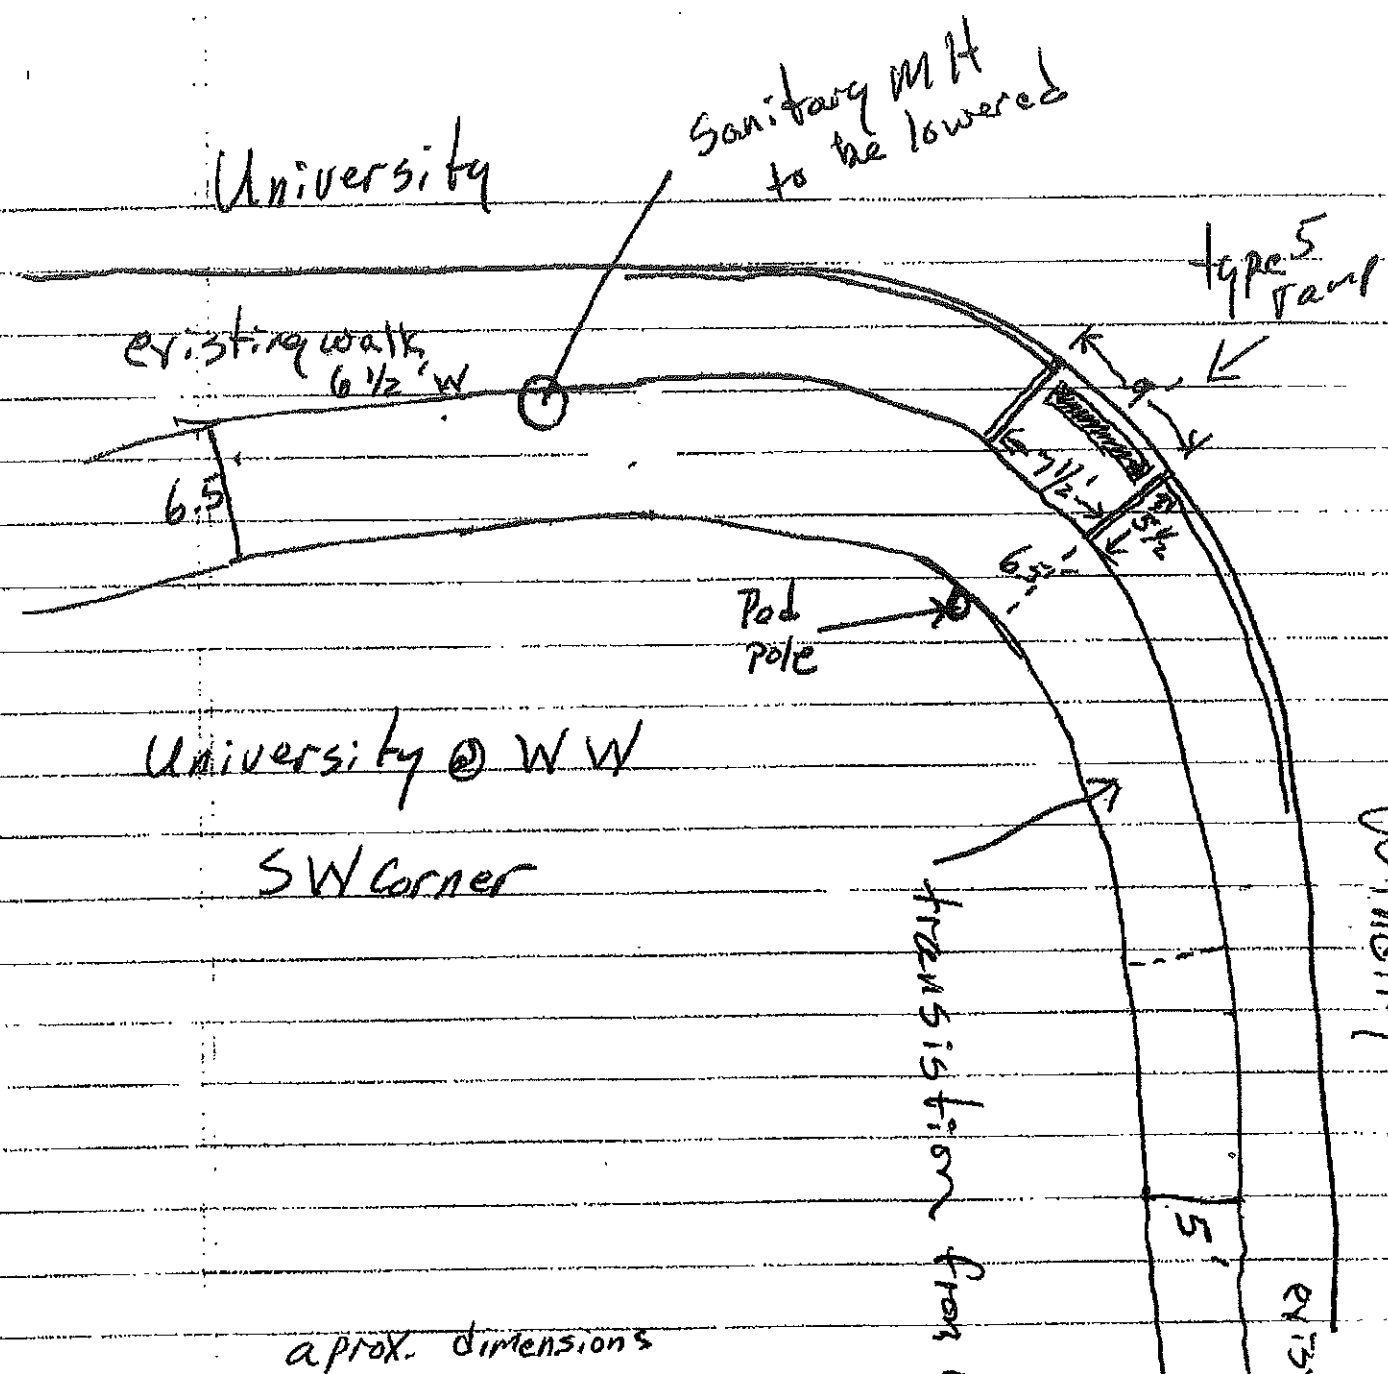 Sanitary MH
to be lowered
University
type 5
ramp
existing walk
6 1/2' W
9'
6.5
7 1/2'
5 1/2
6.5'
Ped
pole
University @ WW
SW Corner
transistion from
5'
aprox. dimensions